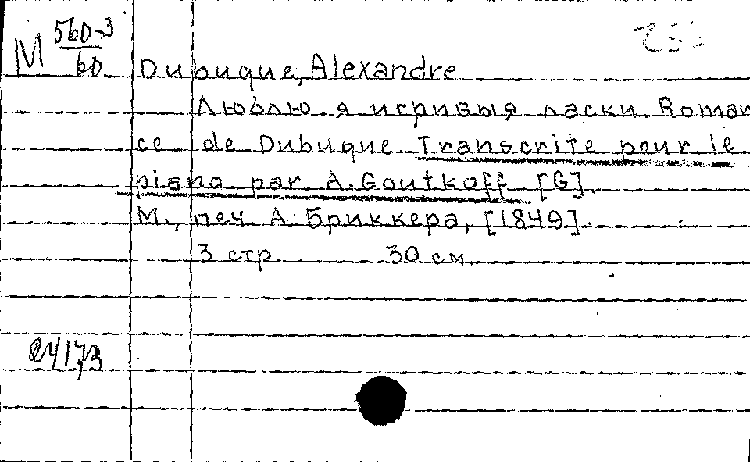 М 560-3
60
Dubuque, Alexandre
Люблю я игривыя ласки. Roman
ce de Dubuque Transcrite pour le
piano par A. Goutkoff [G]
М., печ А. Бриккера, [1849].
3 стр. 30 см.